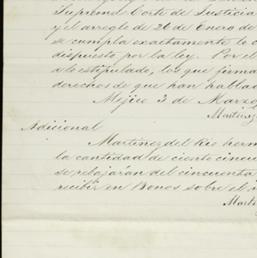 Supreme Corte de Justicia
y el arreglo de 20 de Enero de
se cumpla exactamente lo
dispuesto por la ley. Por el
lo estipulado, los que firma
derechos de que han hablad
Méjico 3 de Marzo
Martinez
Adicional
Martinez del Rio herm
la cantidad de ciento cincu
se rebajarán del cincuenta
recibir en Bonos sobre el
Marti